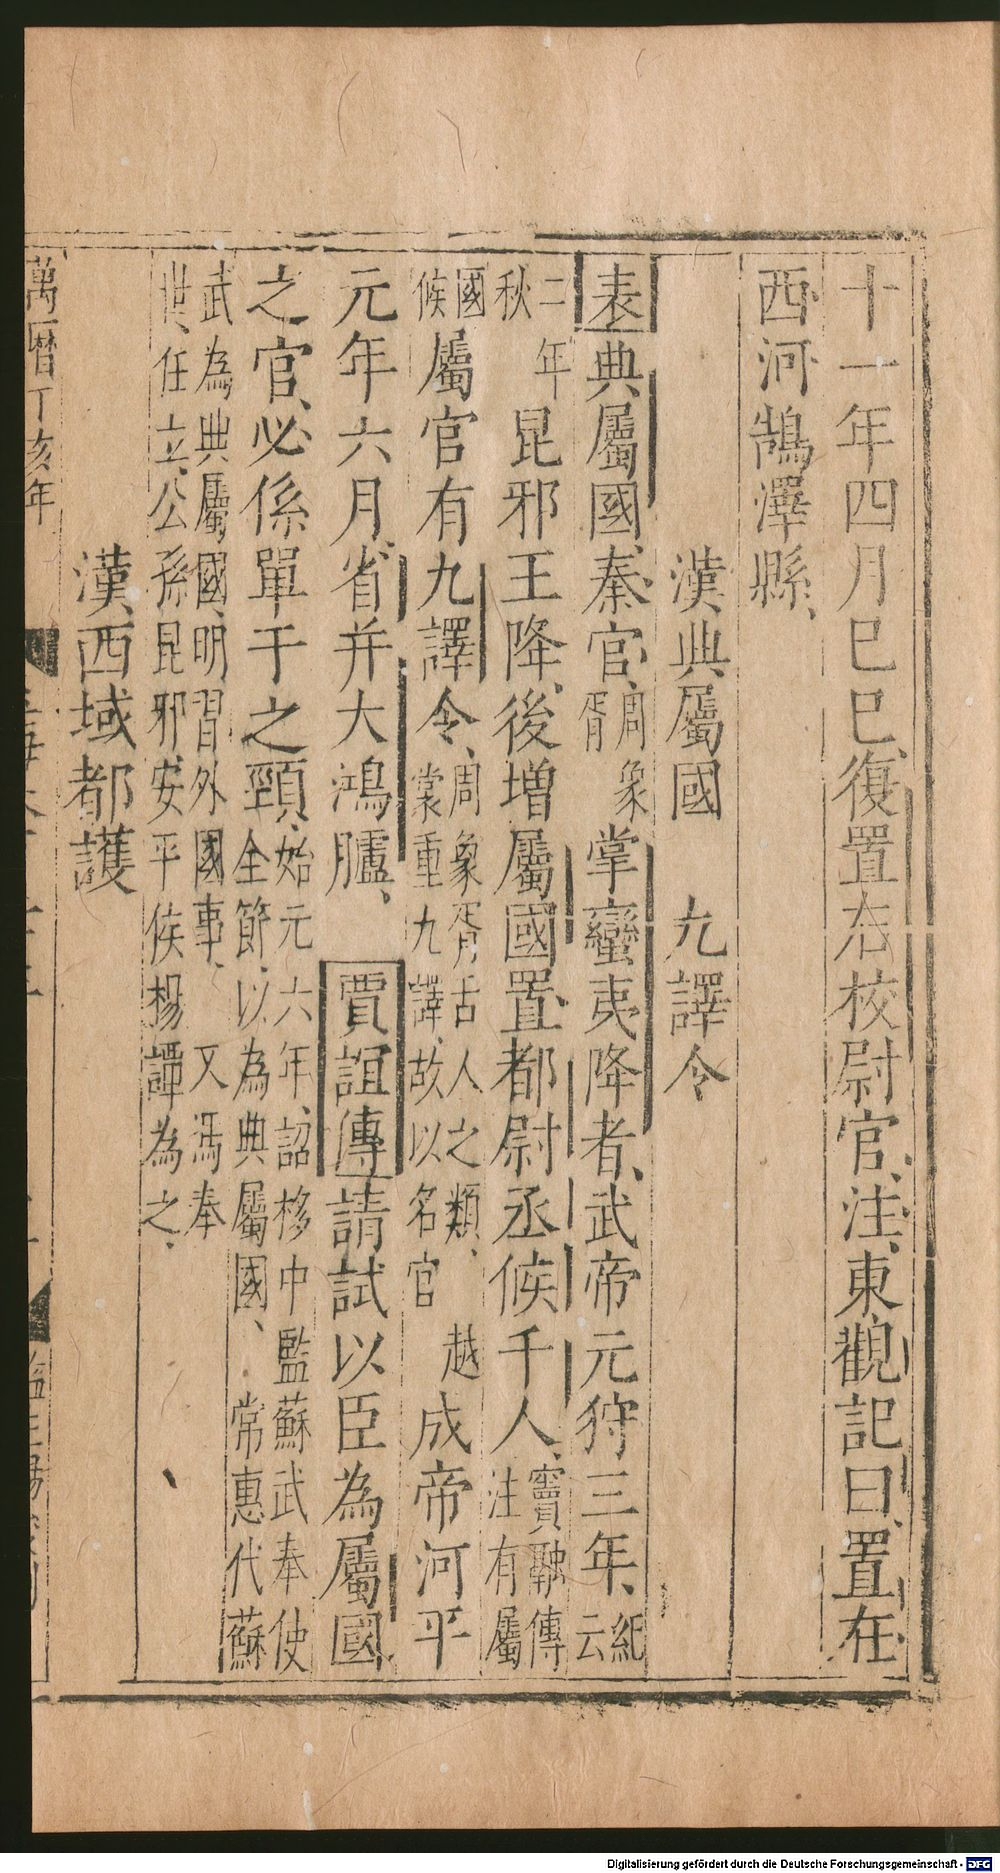 十一年四月巳巳、復置右校尉官、注、東觀記曰、置在
西河鵠澤縣、
漢典屬國　九譯令
表典屬國、秦官、周象胥掌蠻夷降者、武帝元狩三年、紀云
二年秋昆邪王降、後增屬國置都尉丞候千人、竇融傳注有屬
國候屬官有九譯令、周象胥舌人之類、越裳重九譯、故以名官成帝河平
元年六月、省并大鴻臚、賈誼傳請試以臣為屬國
之官、必係單于之頸、始元六年、詔栘中監蘇武奉使全節、以為典屬國、常惠代蘇
武為典屬國、明習外國事、又馮奉世、任立、公孫昆邪、安平侯楊譚為之、
漢西域都護
萬曆丁亥年
Digitalisierung gefördert durch die Deutsche Forschungsgemeinschaft - DFG